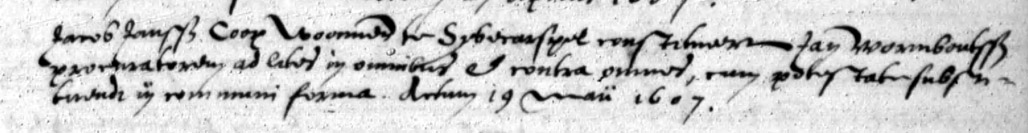 Jacob Janssz Coop Woonende te Sybecarspel constitueert Jan Wormboutssz
procuratorem ad lites in omnibus et contra omnes, cum potestate substi-
tuendi in communi forma. Actum 19 Maii 1607.